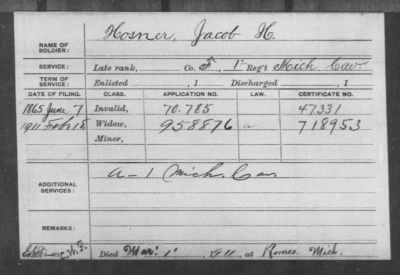 Hosner, Jacob H.
NAME OF SOLDIER:
SERVICE: Late rank, Co. F, 1" Reg't Mich Cav.
TERM OF SERVICE: Enlisted , 1 Discharged , 1
DATE OF FILING. CLASS. APPLICATION NO. LAW. CERTIFICATE NO.
1865 June 7 Invalid, 70.785 47331
1911 Feb 18 Widow, 958876 718953
Minor,
ADDITIONAL SERVICES: A-1 Mich. Cav
REMARKS:
Died Mar. 1" 1911, at Romeo Mich.